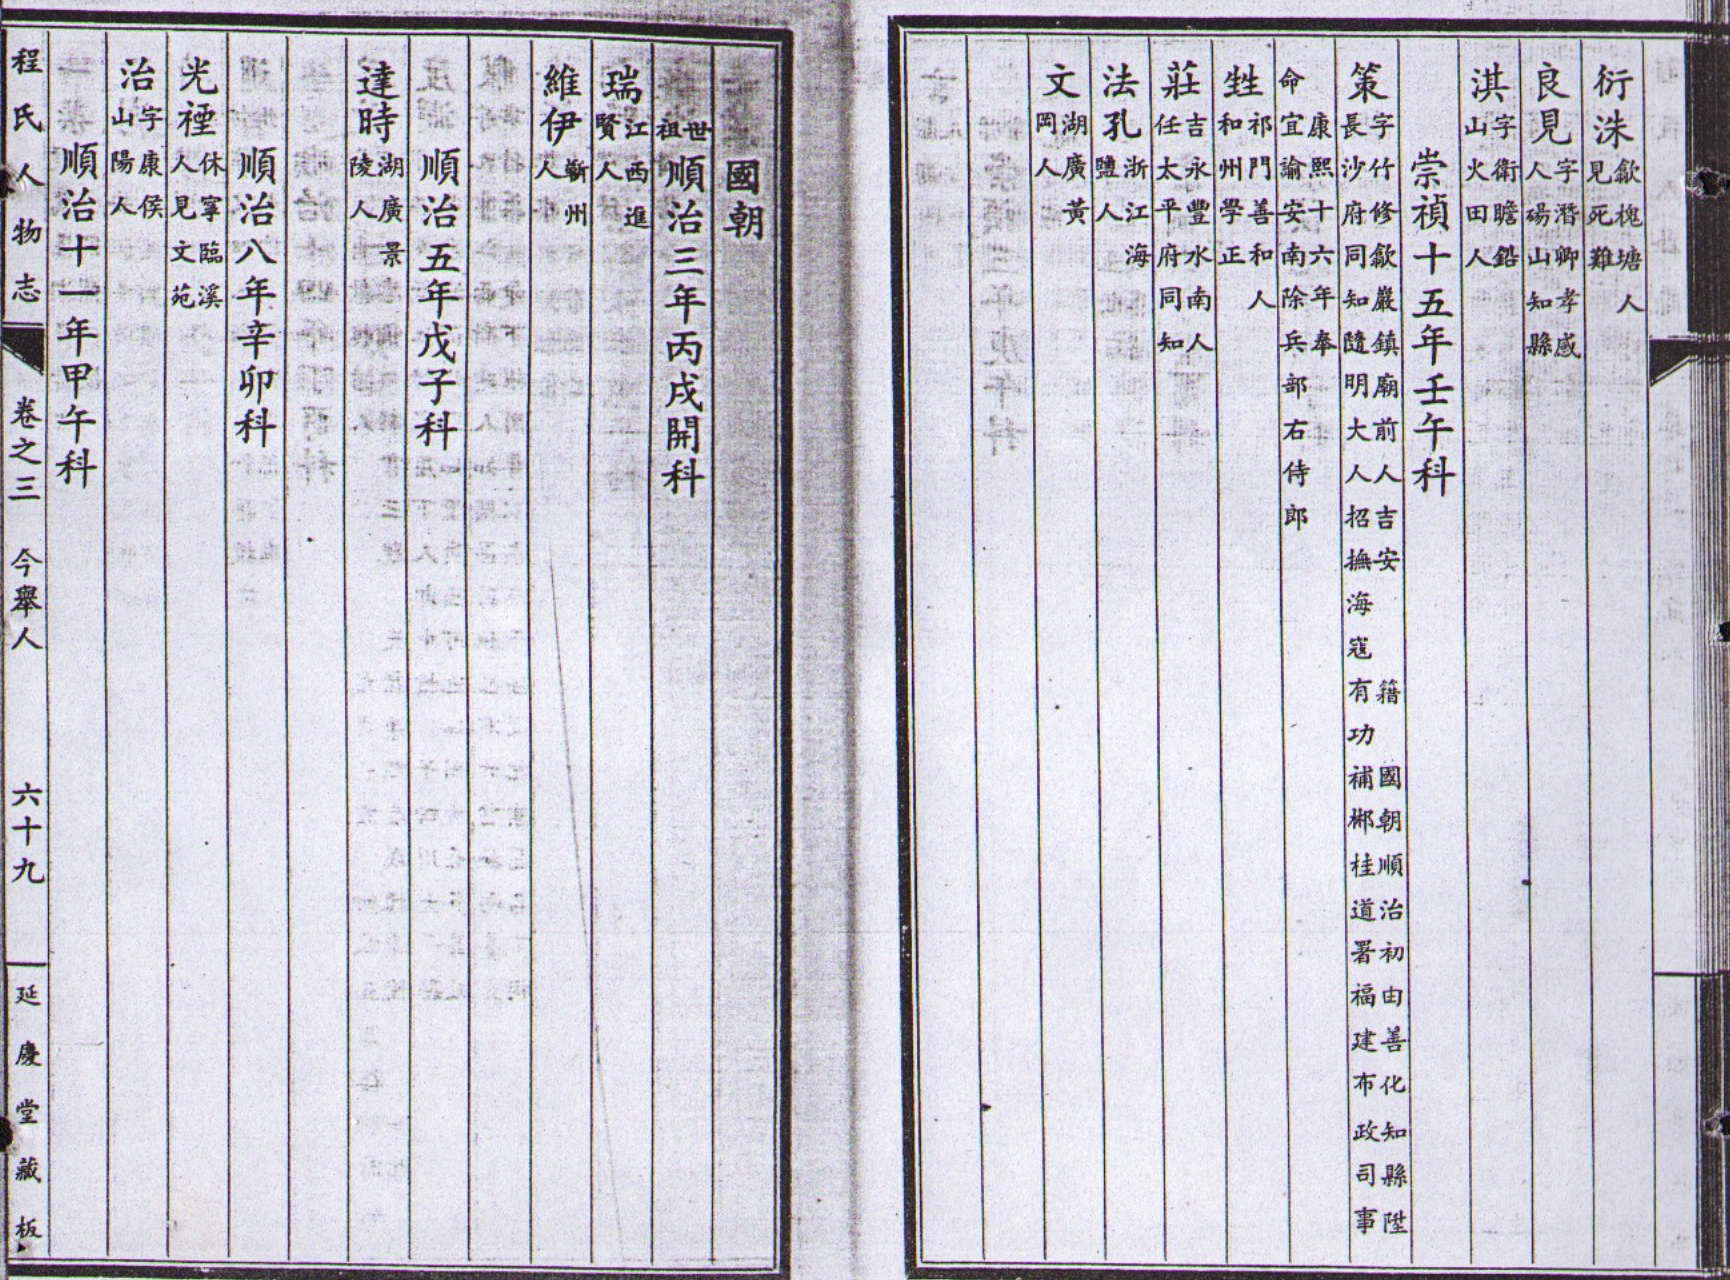 衍洙歙槐塘人見死難
良見字潛卿孝感人碭山知縣
淇字衛瞻鉛山火田人
崇禎十五年壬午科
策字竹修歙巖鎮廟前人吉安籍國朝順治初由善化知縣陞長沙府同知隨明大人招撫海寇有功補郴桂道署福建布政司事
康熙十六年奉命宜諭安南除兵部右侍郎
甡祁門善和人和州學正
莊吉永豐水南人任太平府同知
法孔浙江海鹽人
文湖廣黃岡人
國朝
世祖順治三年丙戌開科
瑞江西進賢人
維伊蘄州人
順治五年戊子科
達時湖廣景陵人
順治八年辛卯科
光禋休寧臨溪人見文苑
治字康侯山陽人
順治十一年甲午科
程氏人物志 卷之三 今舉人 六十九 延慶堂藏板